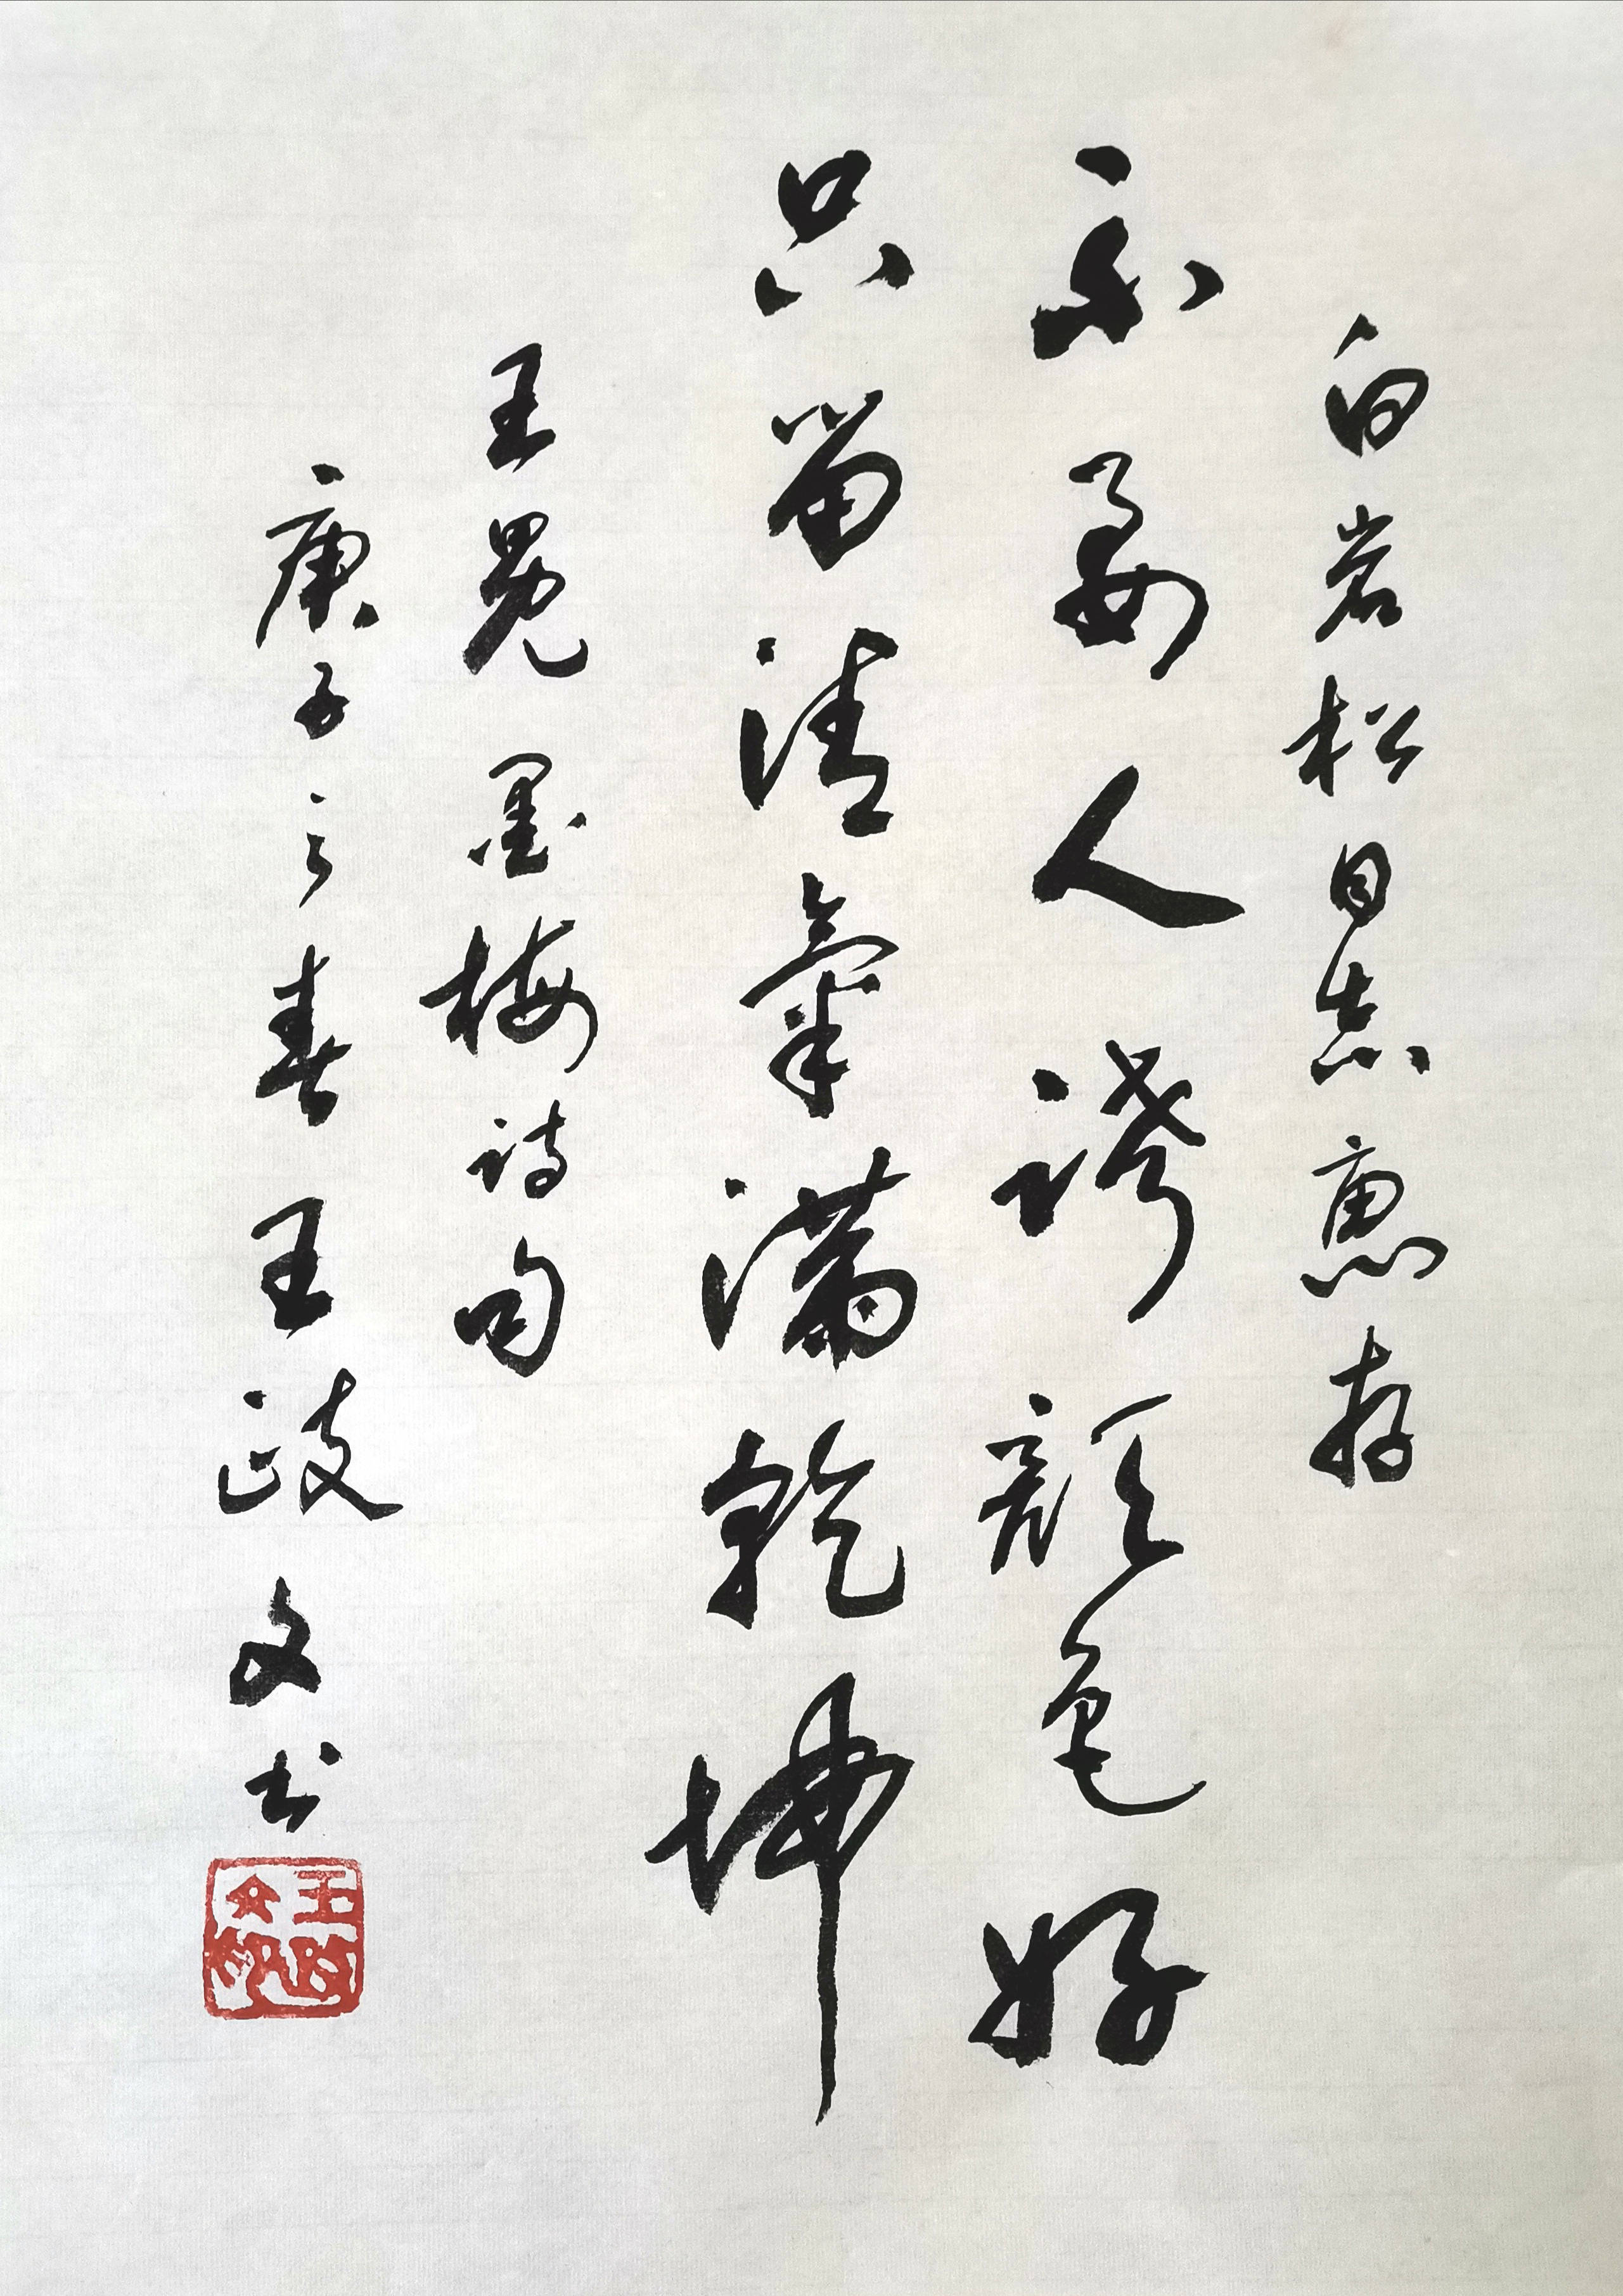 白岩松同志惠存
不要人誇顔色好
只留清氣滿乾坤
王冕墨梅詩句
庚子之春王政文书